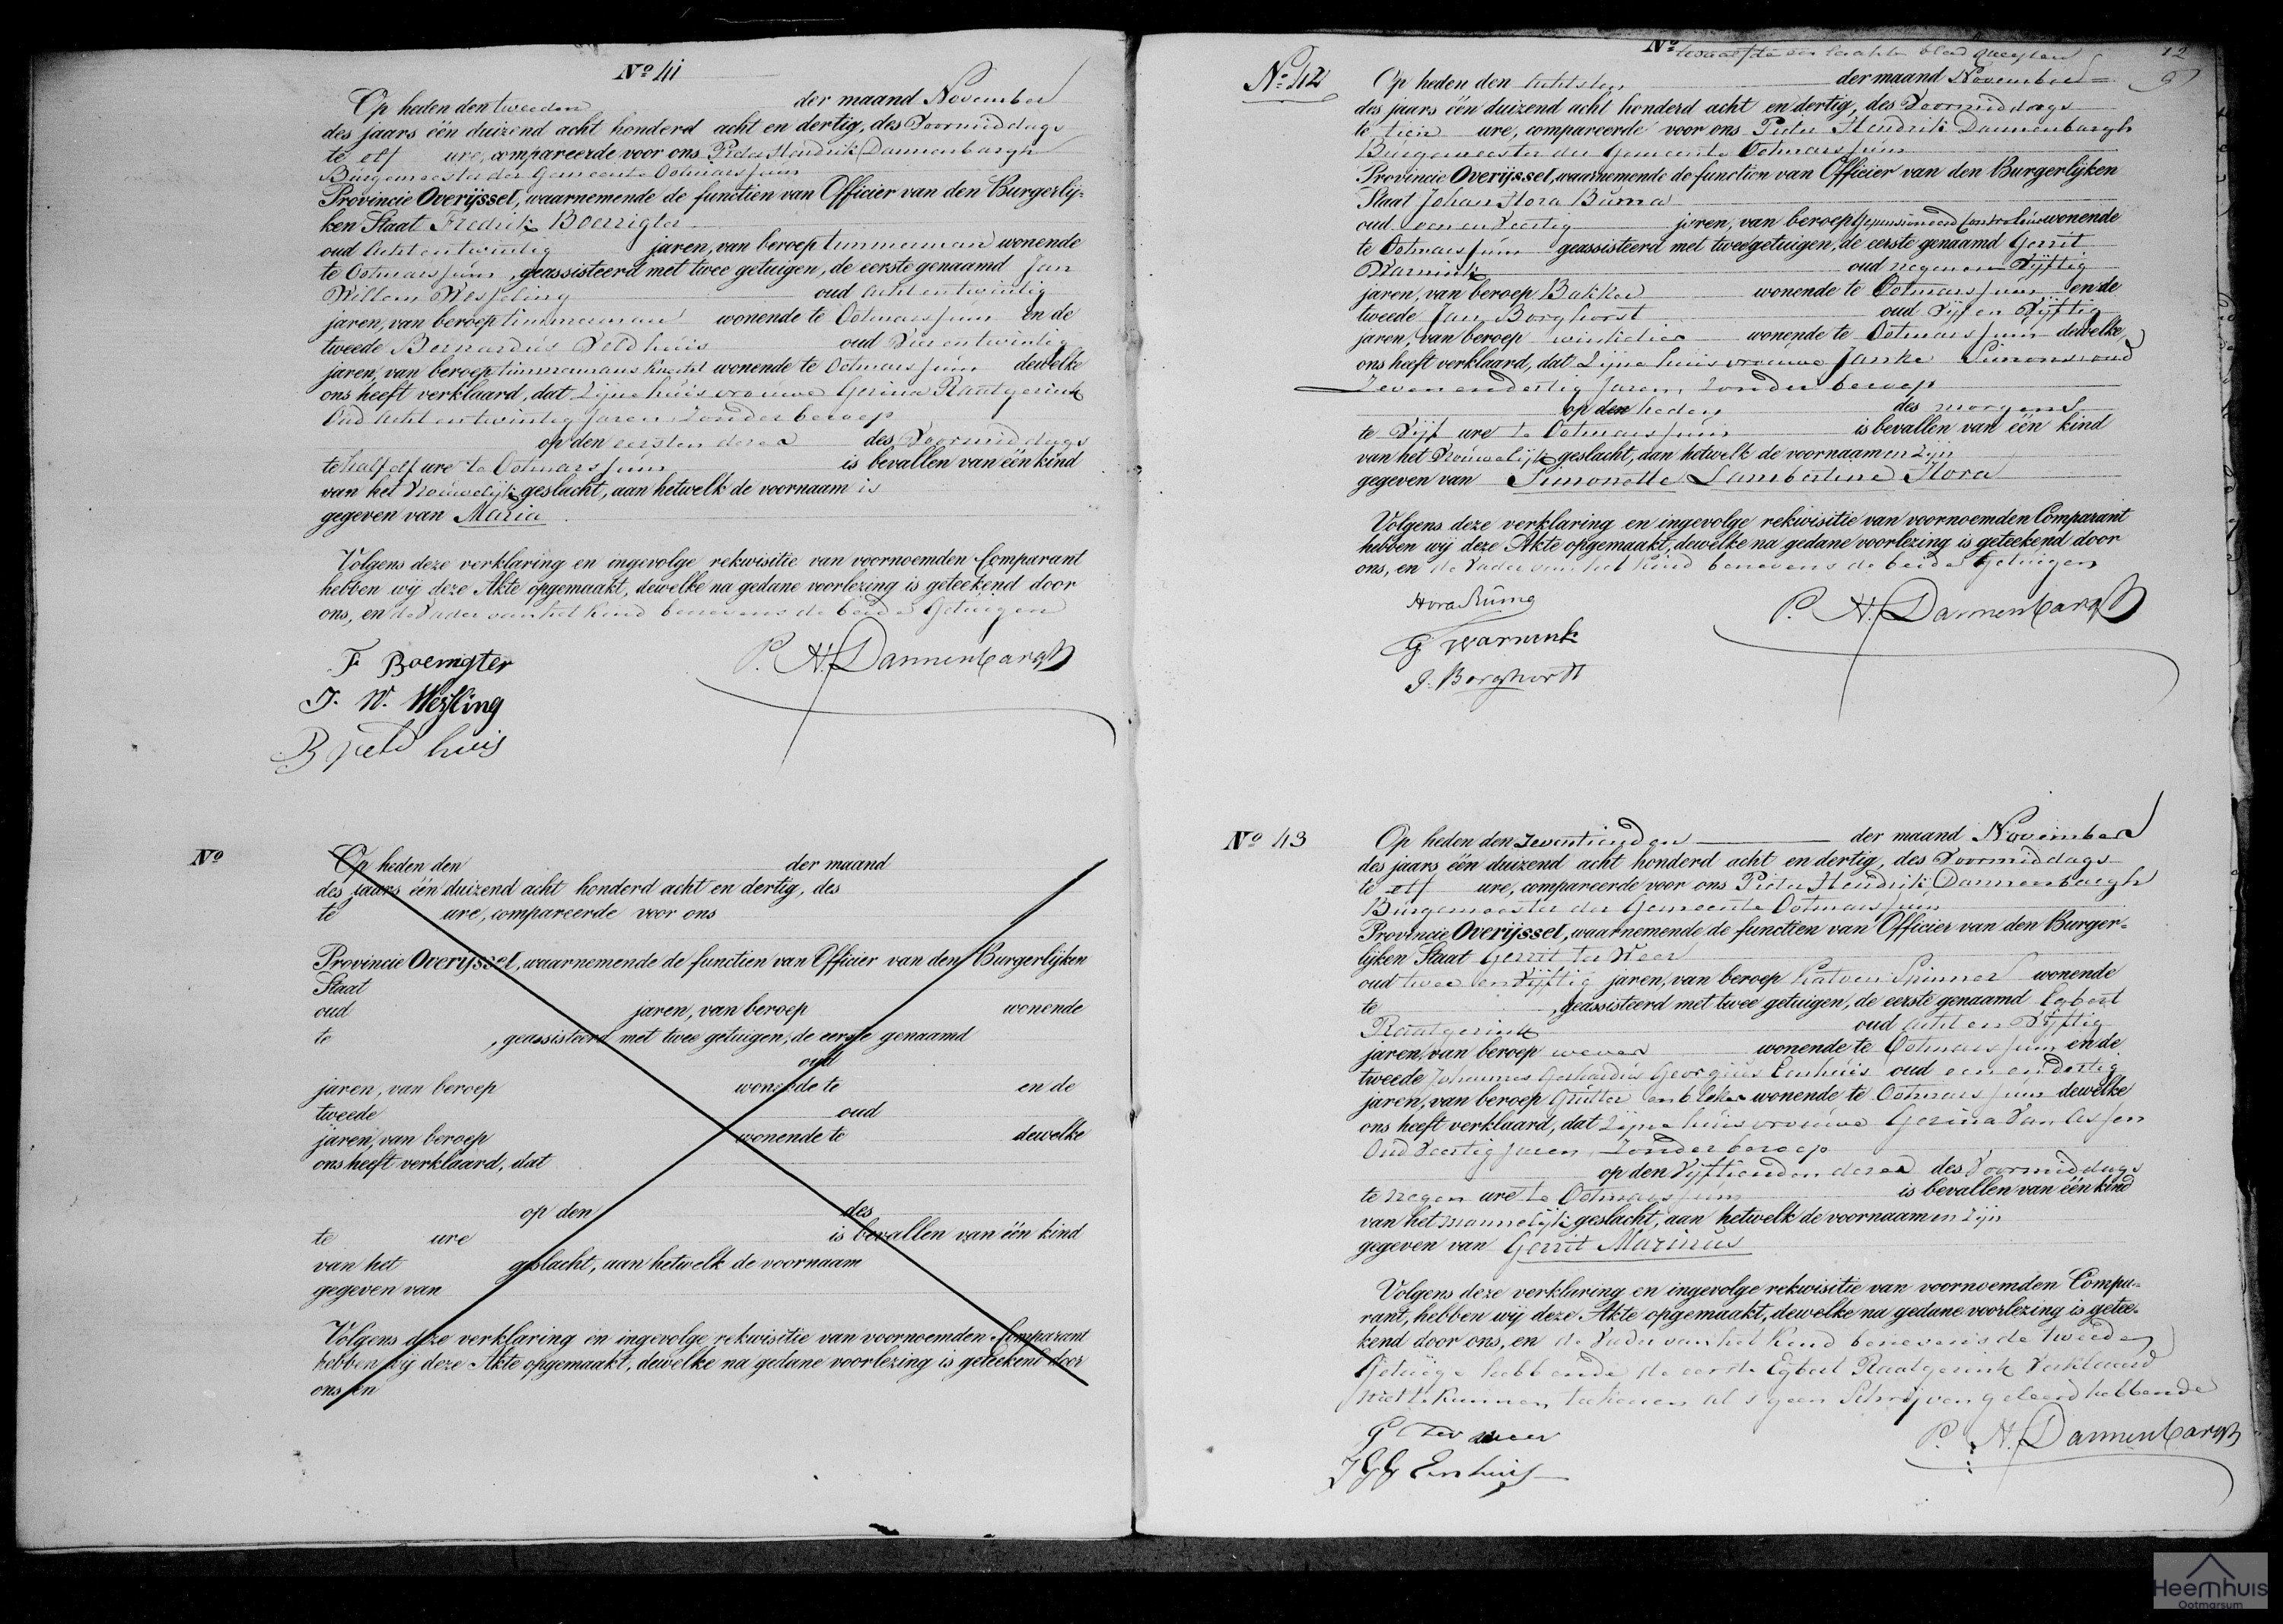 No 41
Op heden den tweeden der maand November
des jaars één duizend acht honderd acht en dertig, des Voormiddags
te elf ure, compareerde voor ons Pieter Hendrik Dannenbargh
Burgemeester der Gemeente Ootmarssum
Provincie Overijssel, waarnemende de functien van Officier van den Burgerlij-
ken Staat Fredrik Boerrigter
oud acht en twintig jaren, van beroep timmerman wonende
te Ootmarssum, geassisteerd met twee getuigen, de eerste genaamd Jan
Willem Wesseling oud acht en twintig
jaren, van beroep timmerman wonende te Ootmarssum en de
tweede Bernardus Veldhuis oud Vier en twintig
jaren, van beroep timmermans knecht wonende te Ootmarssum dewelke
ons heeft verklaard, dat Zijne huisvrouwe Gerina Raatgerink
Oud acht en twintig Jaren Zonder beroep
op den eersten dezer des Voormiddags
te half elf ure te Ootmarssum is bevallen van één kind
van het Vrouwelijk geslacht, aan hetwelk de voornaam is
gegeven van Maria
Volgens deze verklaring en ingevolge rekwisitie van voornoemden Comparant
hebben wij deze Akte opgemaakt, dewelke na gedane voorlezing is geteekend door
ons, en de Vader van het Kind benevens de beide Getuigen
F Boerrigter
P. H. Dannenbargh
J. W. Wesseling
B Veldhuis
No
Op heden den der maand
des jaars één duizend acht honderd acht en dertig, des
te ure, compareerde voor ons
Provincie Overijssel, waarnemende de functien van Officier van den Burgerlijken
Staat
oud jaren, van beroep wonende
te , geassisteerd met twee getuigen, de eerste genaamd
oud
jaren, van beroep wonende te en de
tweede oud
jaren, van beroep wonende te dewelke
ons heeft verklaard, dat
op den des
te ure is bevallen van één kind
van het geslacht, aan hetwelk de voornaam
gegeven van
Volgens deze verklaring en ingevolge rekwisitie van voornoemden Comparant
hebben wij deze Akte opgemaakt, dewelke na gedane voorlezing is geteekend door
ons, en
No twaalfde en laatste blad 12
No 42
Op heden den Achtsten der maand November
des jaars één duizend acht honderd acht en dertig, des Voormiddags
te tien ure, compareerde voor ons Pieter Hendrik Dannenbargh
Burgemeester der Gemeente Ootmarssum
Provincie Overijssel, waarnemende de functien van Officier van den Burgerlijken
Staat Johan Hora Buma
oud een en Veertig jaren, van beroep Gepensioneerd Controleur wonende
te Ootmarssum geassisteerd met twee getuigen, de eerste genaamd Gerrit
Warnink oud negen en Vijftig
jaren, van beroep Bakker wonende te Ootmarssum en de
tweede Jan Borghorst oud Vijf en Vijftig
jaren, van beroep winkelier wonende te Ootmarssum dewelke
ons heeft verklaard, dat Zijne huisvrouwe Janke Simons oud
Zeven en dertig Jaren, Zonder beroep
op den heden des morgens
te Vijf ure te Ootmarssum is bevallen van één kind
van het Vrouwelijk geslacht, dan hetwelk de voornaamen Zijn
gegeven van Simonette Lambertine Hora
Volgens deze verklaring en ingevolge rekwisitie van voornoemden Comparant
hebben wij deze Akte opgemaakt, dewelke na gedane voorlezing is geteekend door
ons, en de Vader van het Kind benevens de beide Getuigen
Hora Buma
P. H. Dannenbargh
G Warnink
J. Borghorst
No 43
Op heden den Zeventienden der maand November
des jaars één duizend acht honderd acht en dertig, des Voormiddags
te elf ure, compareerde voor ons Pieter Hendrik Dannenbargh
Burgemeester der Gemeente Ootmarssum
Provincie Overijssel, waarnemende de functien van Officier van den Burger-
lijken Staat Gerrit ter Weer
oud twee en Vijftig jaren, van beroep Katoen Spinner wonende
te , geassisteerd met twee getuigen, de eerste genaamd Egbert
Raatgerink oud acht en Vijftig
jaren, van beroep wever wonende te Ootmarssum en de
tweede Johannes Gerhardus Georgius Eenhuis oud een en dertig
jaren, van beroep Grutter en bleker wonende te Ootmarssum dewelke
ons heeft verklaard, dat Zijne huisvrouwe Gerina Van Assen
Oud Veertig Jaren, Zonder beroep
op den Vijftienden dezer des Voormiddags
te negen ure te Ootmarssum is bevallen van één kind
van het mannelijk geslacht, aan hetwelk de voornaamen Zijn
gegeven van Gerrit Marinus
Volgens deze verklaring en ingevolge rekwisitie van voornoemden Compa-
rant, hebben wij deze Akte opgemaakt, dewelke na gedane voorlezing is getee-
kend door ons, en de Vader van het Kind benevens de tweede
Getuige hebbende de eerste Egbert Raatgerink Verklaard
niet te kunnen teekenen als geen Schrijven geleerd hebbende
G ter weer
P. H. Dannenbargh
J G G Eenhuis
Heemhuis
Ootmarsum